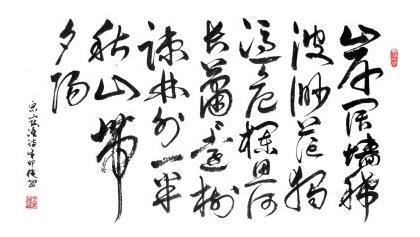 岸阔樯稀
波渺茫独
凭危槛思何
长萧々远树
疎林外一半
秋山带
夕阳
宋寇准诗辛卯